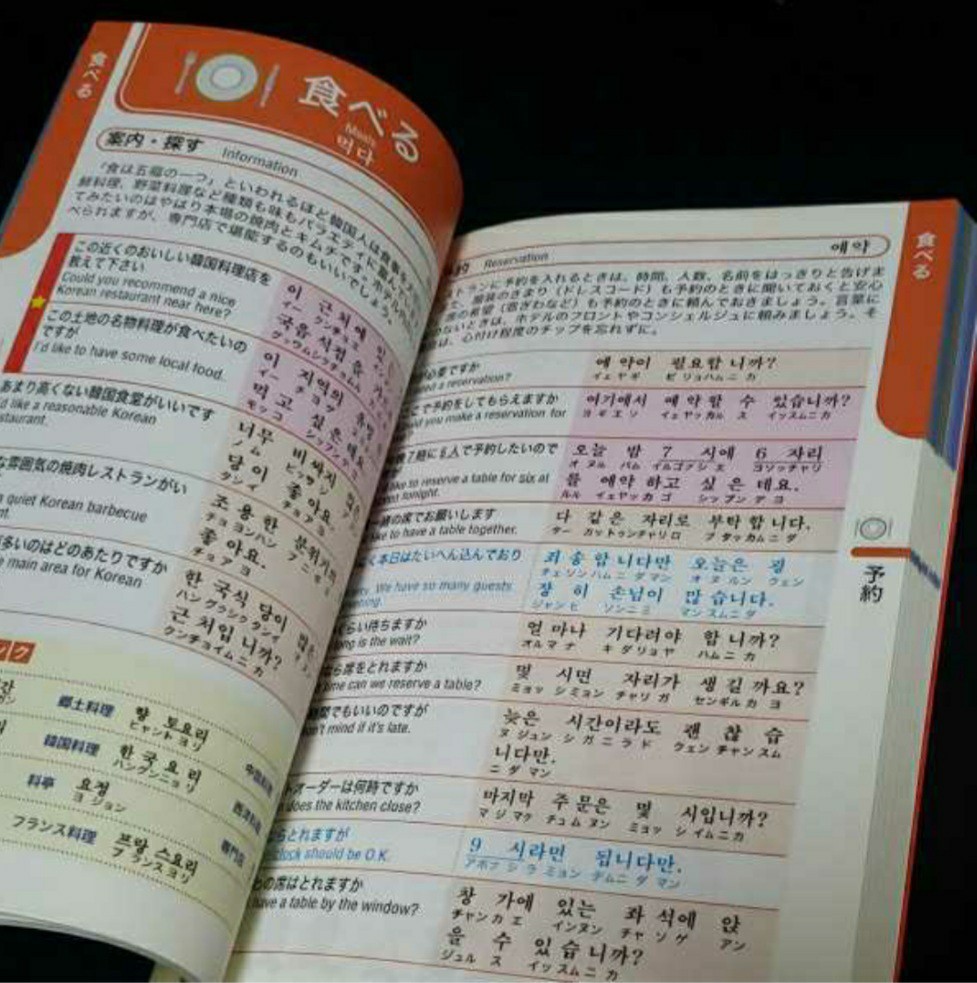 食べる
食べる
Meals
먹다
案内・探す Information
「食は五福の一つ」といわれるほど韓国人は食事を
鮮料理、野菜料理など種類も味もバラエティに富ん
てみたいのはやはり本場の焼肉とキムチです。ホテル
べられますが、専門店で堪能するのもいいでしょう。
この近くのおいしい韓国料理店を
教えて下さい
Could you recommend a nice
Korean restaurant near here?
이 근처에
この土地の名物料理が食べたいの
ですが
I'd like to have some local food.
이 지역의
먹고 싶은데요
あまり高くない韓国食堂がいいです
like a reasonable Korean
너무 비싸지
당이 좋아요
な雰囲気の焼肉レストランがい
quiet Korean barbecue
조용한 분위기
좋아요.
多いのはどのあたりですか
main area for Korean
한국식당이
근처입니까?
クンチョイムニカ
郷土料理 향토요리
ヒャントヨリ
韓国料理 한국요리
ハングンニョリ
料亭 요정
ヨジョン
フランス料理 프랑스요리
フランスヨリ
専門店
Reservation 예약
食べる
予約
ストランに予約を入れるときは、時間、人数、名前をはっきりと告げま
服装のきまり（ドレスコード）も予約のときに聞いておくと安心
席の希望（窓ぎわなど）も予約のときに頼んでおきましょう。言葉に
ないときは、ホテルのフロントやコンシェルジュに頼みましょう。そ
は、心付け程度のチップを忘れずに。
必要ですか
a reservation?
예약이 필요합니까?
イェヤギ ピリョハムニカ
こで予約をしてもらえますか
you make a reservation for
여기에서 예약할 수 있습니까?
ヨギエソ イェヤッカル ス イッスムニカ
晩7時に6人で予約したいので
like to reserve a table for six at
tonight.
오늘 밤 7 시에 6 자리
オヌル パム イルゴプシエ ヨソッチャリ
를 예약하고 싶은데요.
ルル イェヤッカゴ シップンデヨ
緒の席でお願いします
like to have a table together.
다 같은 자리로 부탁합니다.
ター カットゥンチャリロ プタッカムニダ
本日はたいへん込んでおり
We have so many guests
죄송합니다만 오늘은 굉
チェソンハムニダマン オヌルン クェン
장히 손님이 많습니다.
ジャンヒ ソンニミ マンスムニダ
くらい待ちますか
long is the wait?
얼마나 기다려야 합니까?
オルマナ キダリョヤ ハムニカ
ら席をとれますか
time can we reserve a table?
몇 시면 자리가 생길까요?
ミョッ シミョン チャリガ センギルカヨ
時間でもいいのですが
don't mind if it's late.
늦은 시간이라도 괜찮습
ヌジュン シガニラド クェンチャンスム
니다만.
ニダマン
オーダーは何時ですか
does the kitchen close?
마지막 주문은 몇 시입니까?
マジマク チュムヌン ミョッ シイムニカ
らとれますが
clock should be O.K.
9 시라면 됩니다만.
アホプ シラミョン デムニダマン
の席はとれますか
have a table by the window?
창가에 있는 좌석에 앉
チャンカエ インヌン チャソゲ アン
을 수 있습니까?
ジュル ス イッスムニカ